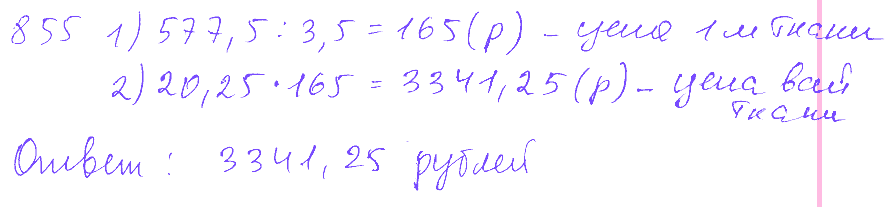 855 1) 577,5 : 3,5 = 165 (р) – цена 1 м ткани
2) 20,25 · 165 = 3341,25 (р) – цена вай
ткани
Ответ : 3341,25 рублей